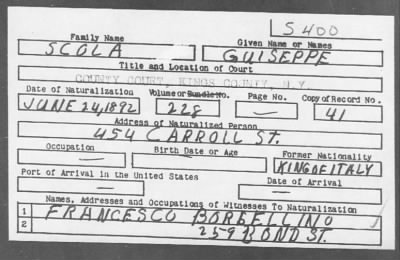 S 400
Family Name Given Name or Names
SCOLA GUISEPPE
Title and Location of Court
COUNTY COURT, KINGS COUNTY, N.Y.
Date of Naturalization Volume or Bundle No. Page No. Copy of Record No.
JUNE 24, 1892 228 — 41
Address of Naturalized Person
454 CARROLL ST.
Occupation Birth Date or Age Former Nationality
— — KING OF ITALY
Port of Arrival in the United States Date of Arrival
— —
Names, Addresses and Occupations of Witnesses To Naturalization
1 FRANCESCO BORGELLINO
2 259 BOND ST.